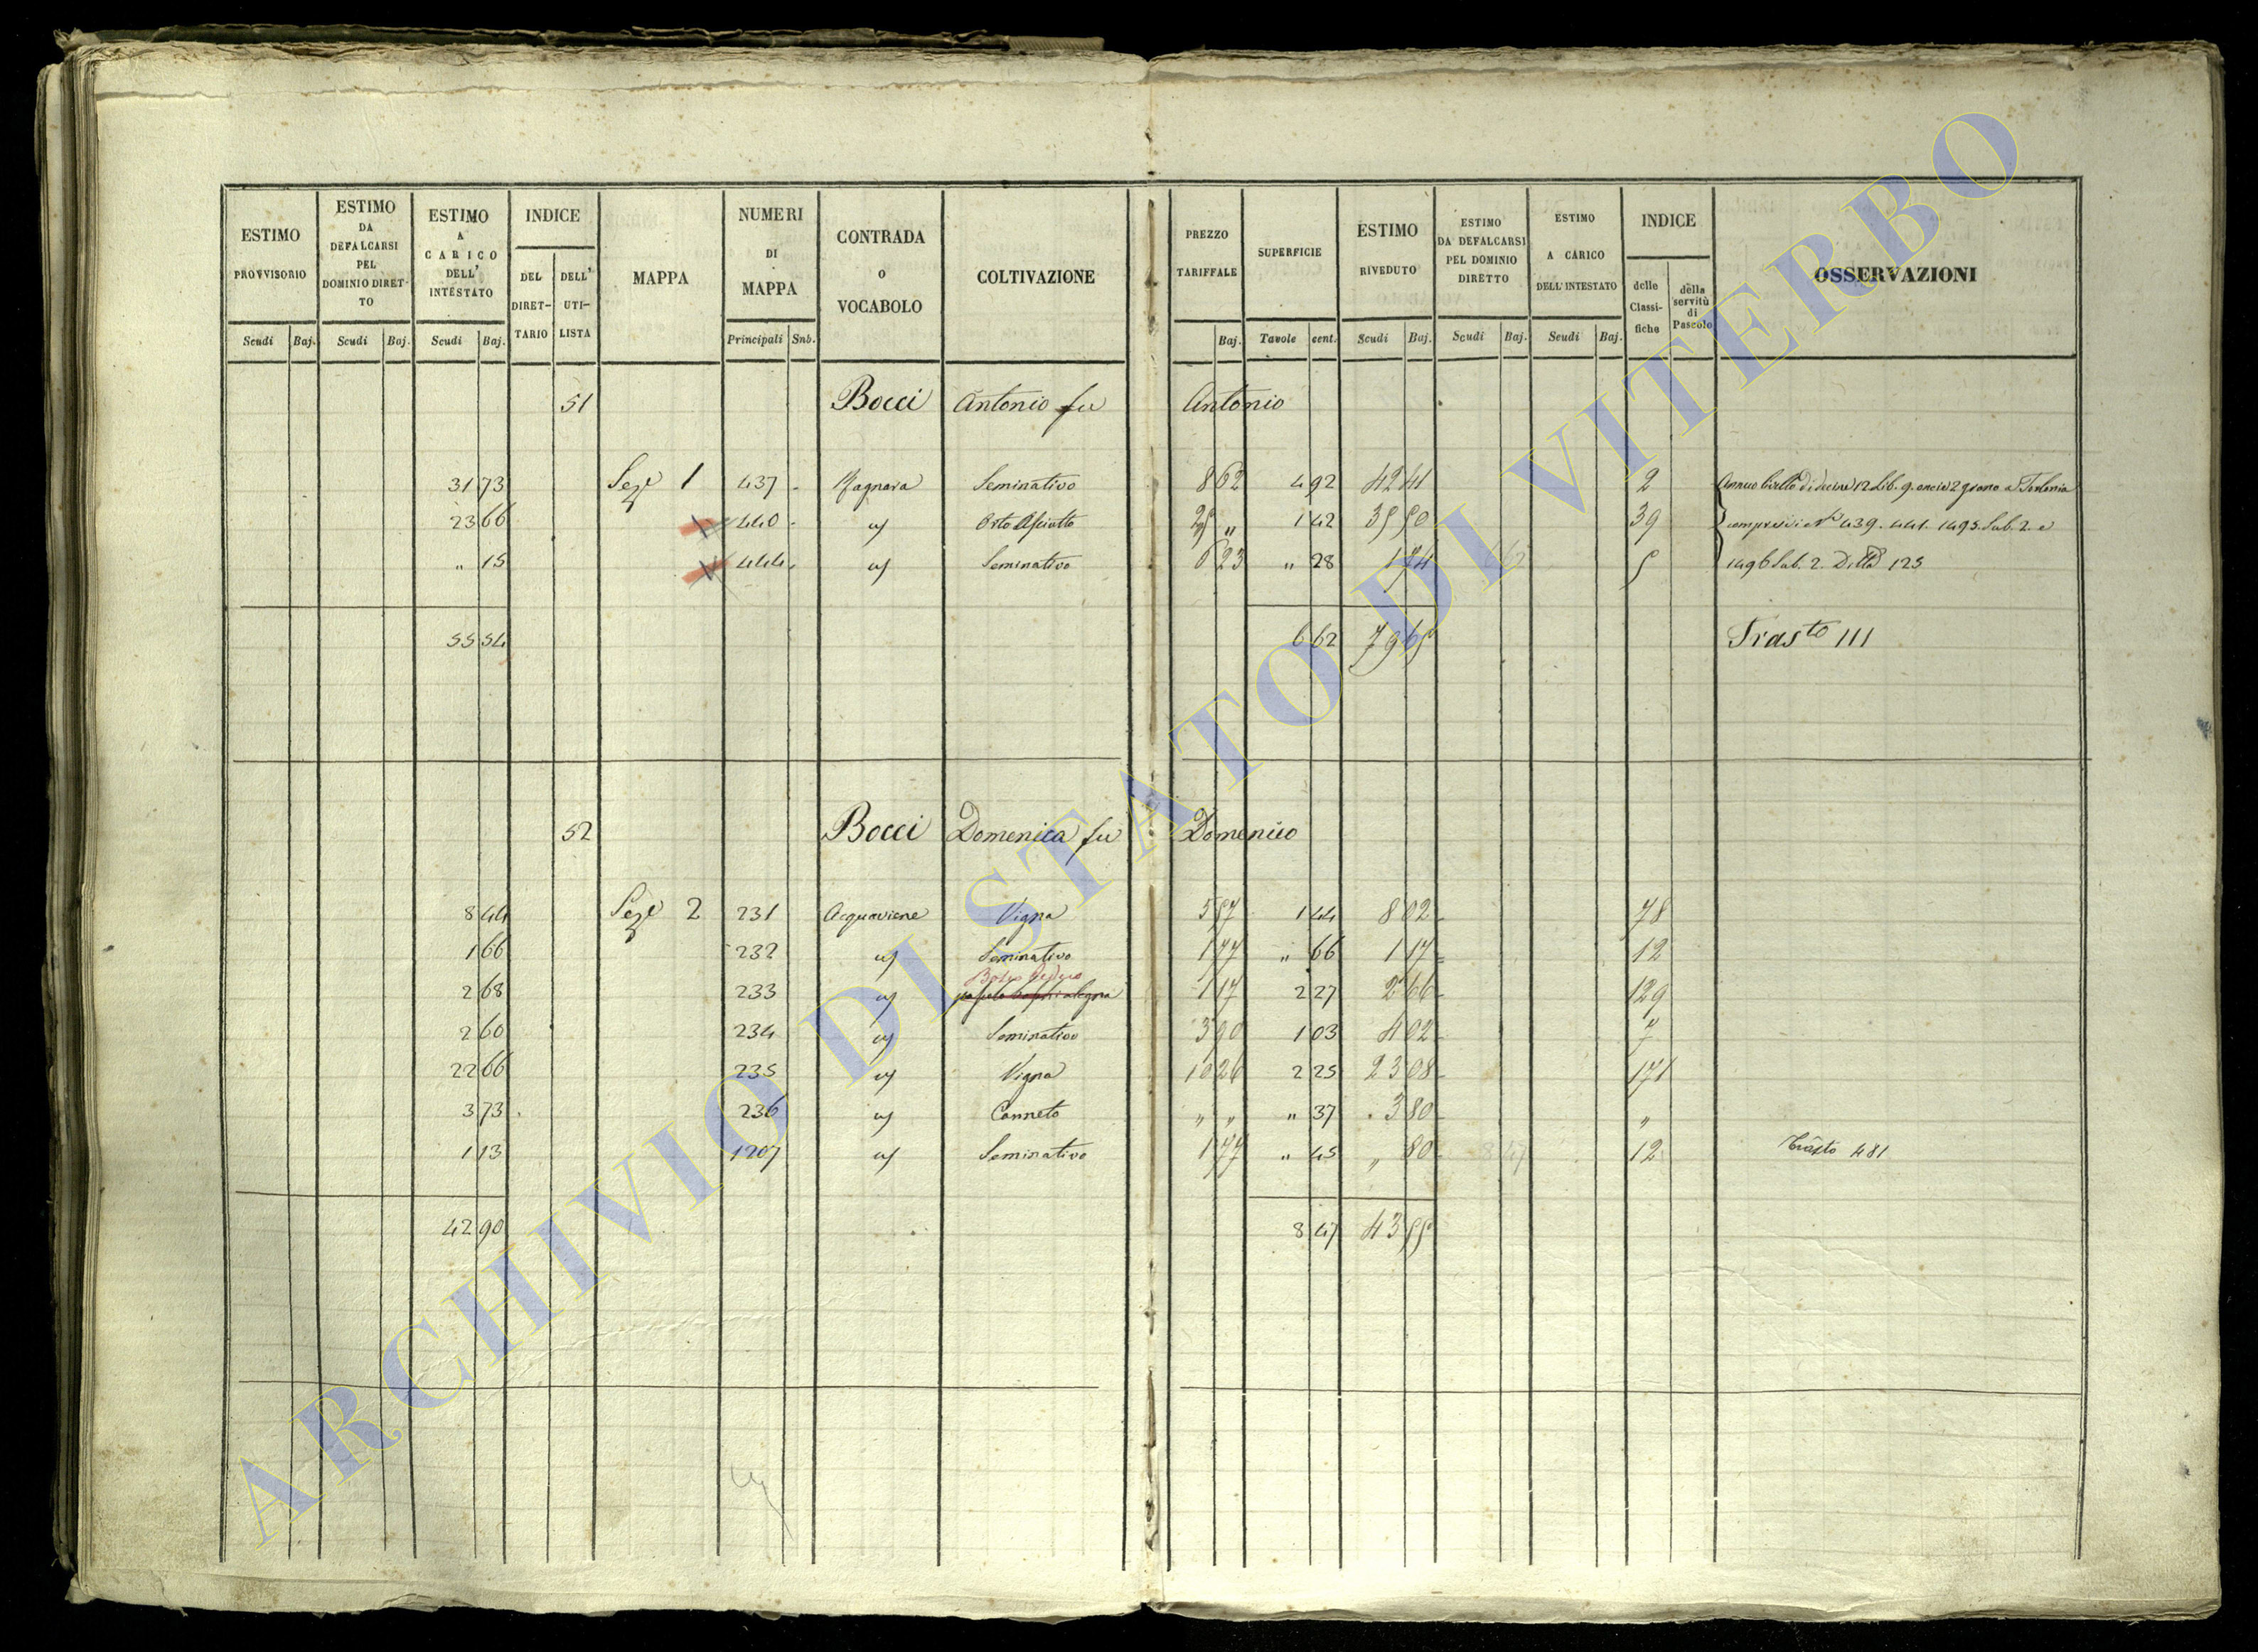 ESTIMO PROVVISORIO Scudi Baj.
ESTIMO DA DEFALCARSI PEL DOMINIO DIRETTO Scudi Baj.
ESTIMO A CARICO DELL' INTESTATO Scudi Baj.
INDICE DEL DIRETTARIO DELL' UTILISTA
MAPPA
NUMERI DI MAPPA Principali Snb.
CONTRADA O VOCABOLO
COLTIVAZIONE
PREZZO TARIFFALE Baj.
SUPERFICIE Tavole cent.
ESTIMO RIVEDUTO Scudi Baj.
ESTIMO DA DEFALCARSI PEL DOMINIO DIRETTO Scudi Baj.
ESTIMO A CARICO DELL'INTESTATO Scudi Baj.
INDICE delle Classifiche della servitù di Pascolo
OSSERVAZIONI
51 Bocci Antonio fu Antonio
31 73 Seze 1 437 Seminativo 8 62 4 92 42 41 2
23 66 1 440 Orto Asciutto 25 " 1 42 35 50 39 compresivi 439. 441. 1495. Sub. 2. e
" 15 1 444 Seminativo 6 23 " 28 1 74 5 1496 Sub. 2. Ditta 125
55 54 6 62 79 65 Trasto 111
52 Bocci Domenica fu Domenico
8 44 Seze 2 231 Acquaviene Vigna 5 57 1 44 8 02 78
1 66 232 Seminativo 1 77 " 66 1 17 12
2 68 233 1 17 2 27 2 66 129
2 60 234 Seminativo 3 90 1 03 4 02 7
22 66 235 Vigna 10 26 2 25 23 08 171
3 73 236 Canneto " " " 37 3 80 "
1 13 1207 Seminativo 1 77 " 45 " 80 12 Trasto 481
42 90 8 47 43 55
ARCHIVIO DI STATO DI VITERBO